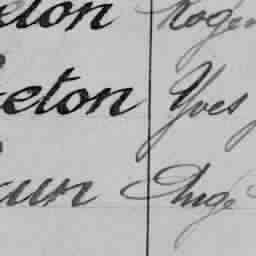 eton Roger
eton Yves
aun Ange